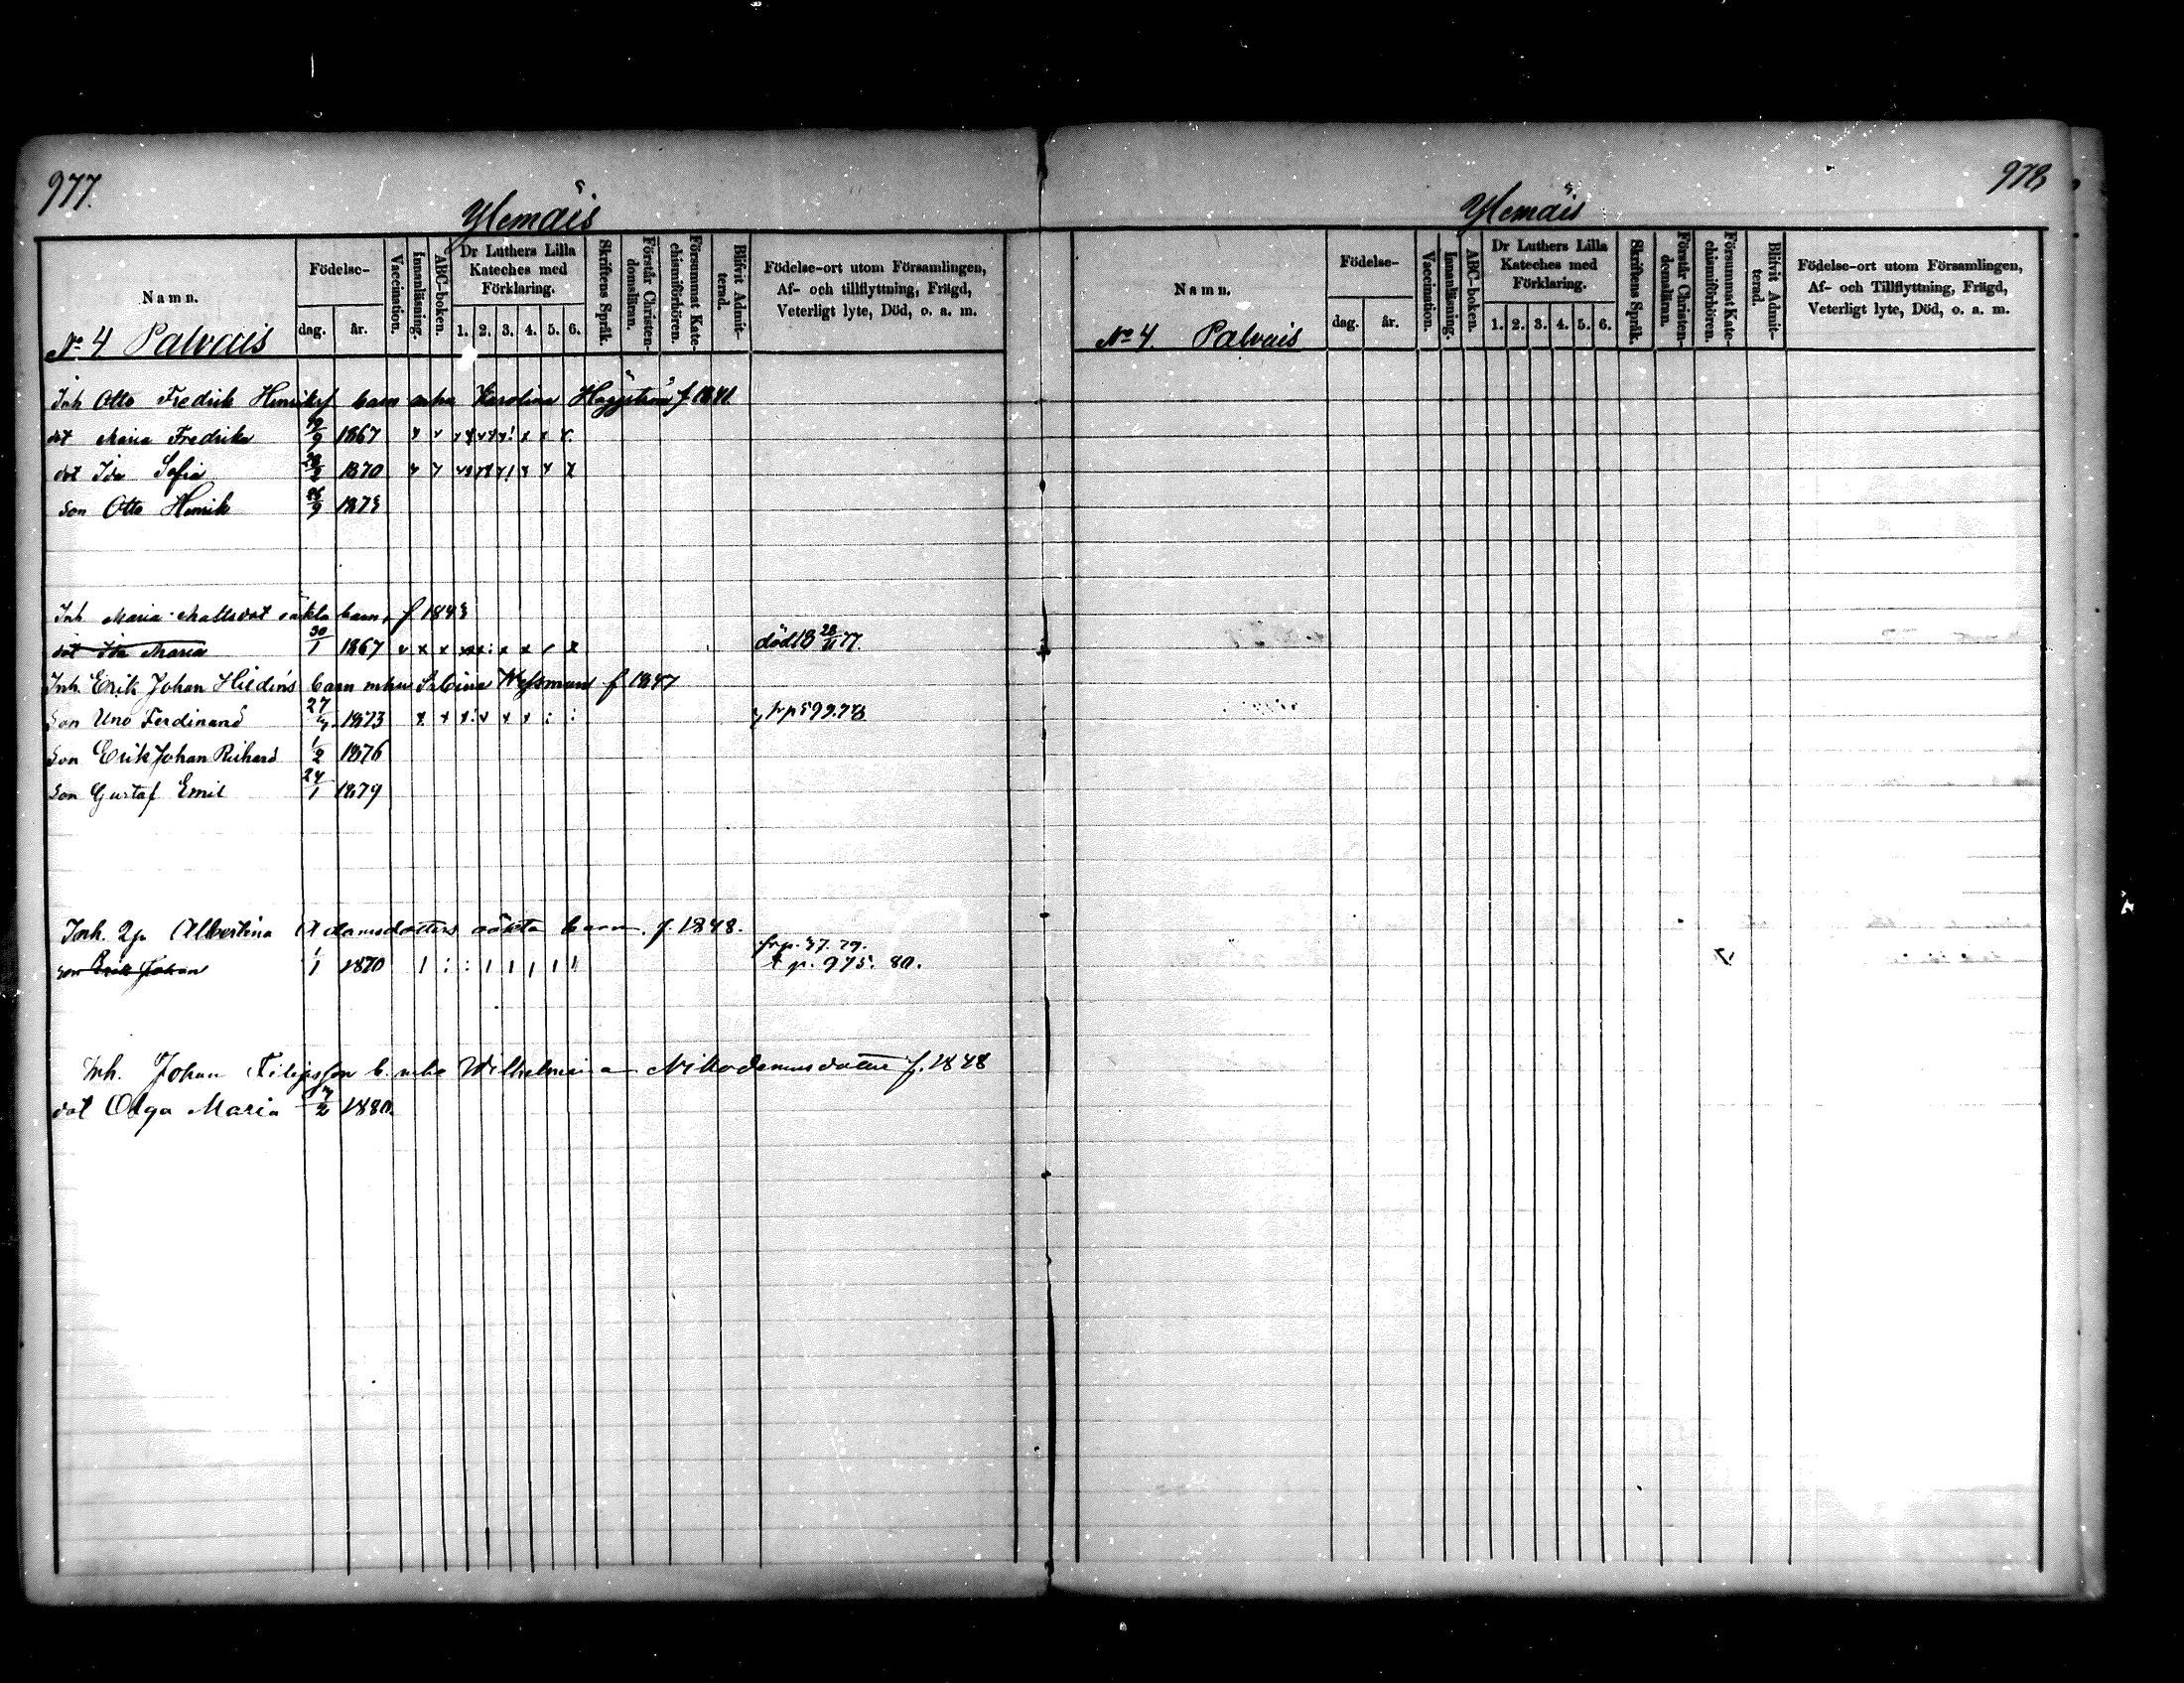 977.
Ylemäis
Namn.
Födelse-
dag. år.
Vaccination.
Innanläsning.
ABC-boken.
Dr Luthers Lilla
Kateches med
Förklaring.
1. 2. 3. 4. 5. 6.
Skriftens Språk.
Förstår Christen-
domsläran.
Försummat Kate-
chismiförhören.
Blifvit Admit-
terad.
Födelse-ort utom Församlingen,
Af- och tillflyttning, Frägd,
Veterligt lyte, Död, o. a. m.
No 4 Palvais
Inh Otto Fredrik Henriks barn Karolina Häggström f 1841.
dot Maria Fredrika 9 1867
dot Ida Sofia 1870
Son Otto Henrik 9 1873
Inh Maria Mattsdot oäkta barn, f 184
dot Ida Maria 30/1 1867 död 18 28/11 77.
Inh. Erik Johan Hiedin's barn mhu Sabina Wessman f 1847
Son Uno Ferdinand 27 1873
Son Erik Johan Richard 1/2 1876
Son Gustaf Emil 24/1 1879
Inh. 2p Albertina Adamsdotters oäkta barn. f. 1848.
frp. 37. 79.
son Erik Johan 1/1 1870 t p. 975. 80.
Inh. Johan Filipsson b. mha Wilhelmina Nikodemusdotter f. 1848
dot Olga Maria 2 1880.
978
Ylemäis
Namn.
Födelse-
dag. år.
Vaccination.
Innanläsning.
ABC-boken.
Dr Luthers Lilla
Kateches med
Förklaring.
1. 2. 3. 4. 5. 6.
Skriftens Språk.
Förstår Christen-
domsläran.
Försummat Kate-
chismiförhören.
Blifvit Admit-
terad.
Födelse-ort utom Församlingen,
Af- och Tillflyttning, Frägd,
Veterligt lyte, Död, o. a. m.
No 4. Palvais